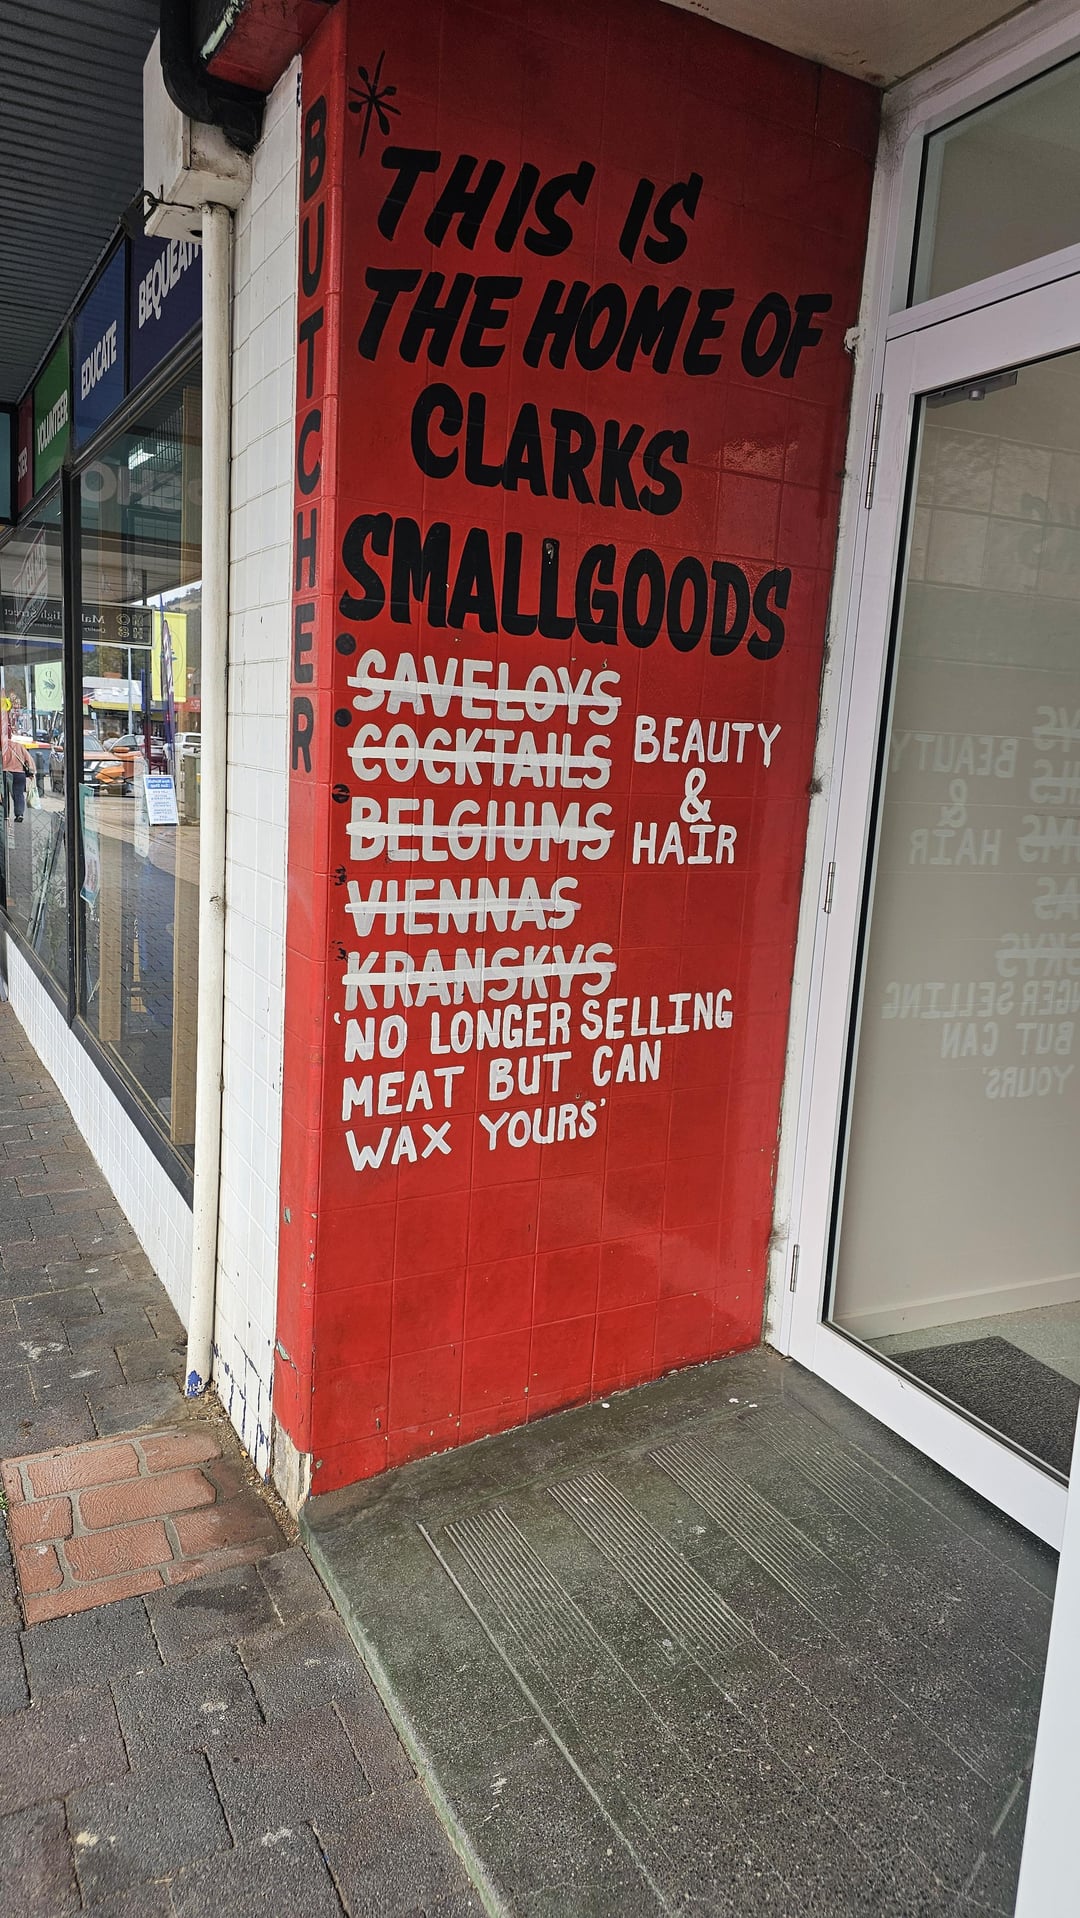 BUTCHER
THIS IS
THE HOME OF
CLARKS
SMALLGOODS
SAVELOYS
COCKTAILS
BELGIUMS
VIENNAS
KRANSKYS
BEAUTY
&
HAIR
'NO LONGER SELLING
MEAT BUT CAN
WAX YOURS'
VOLUNTEER
EDUCATE